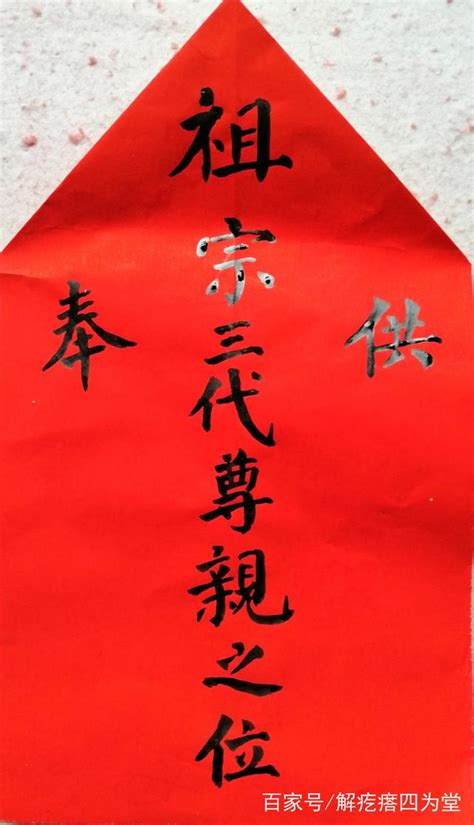 供
祖宗三代尊親之位
奉
百家号/解疙瘩四为堂